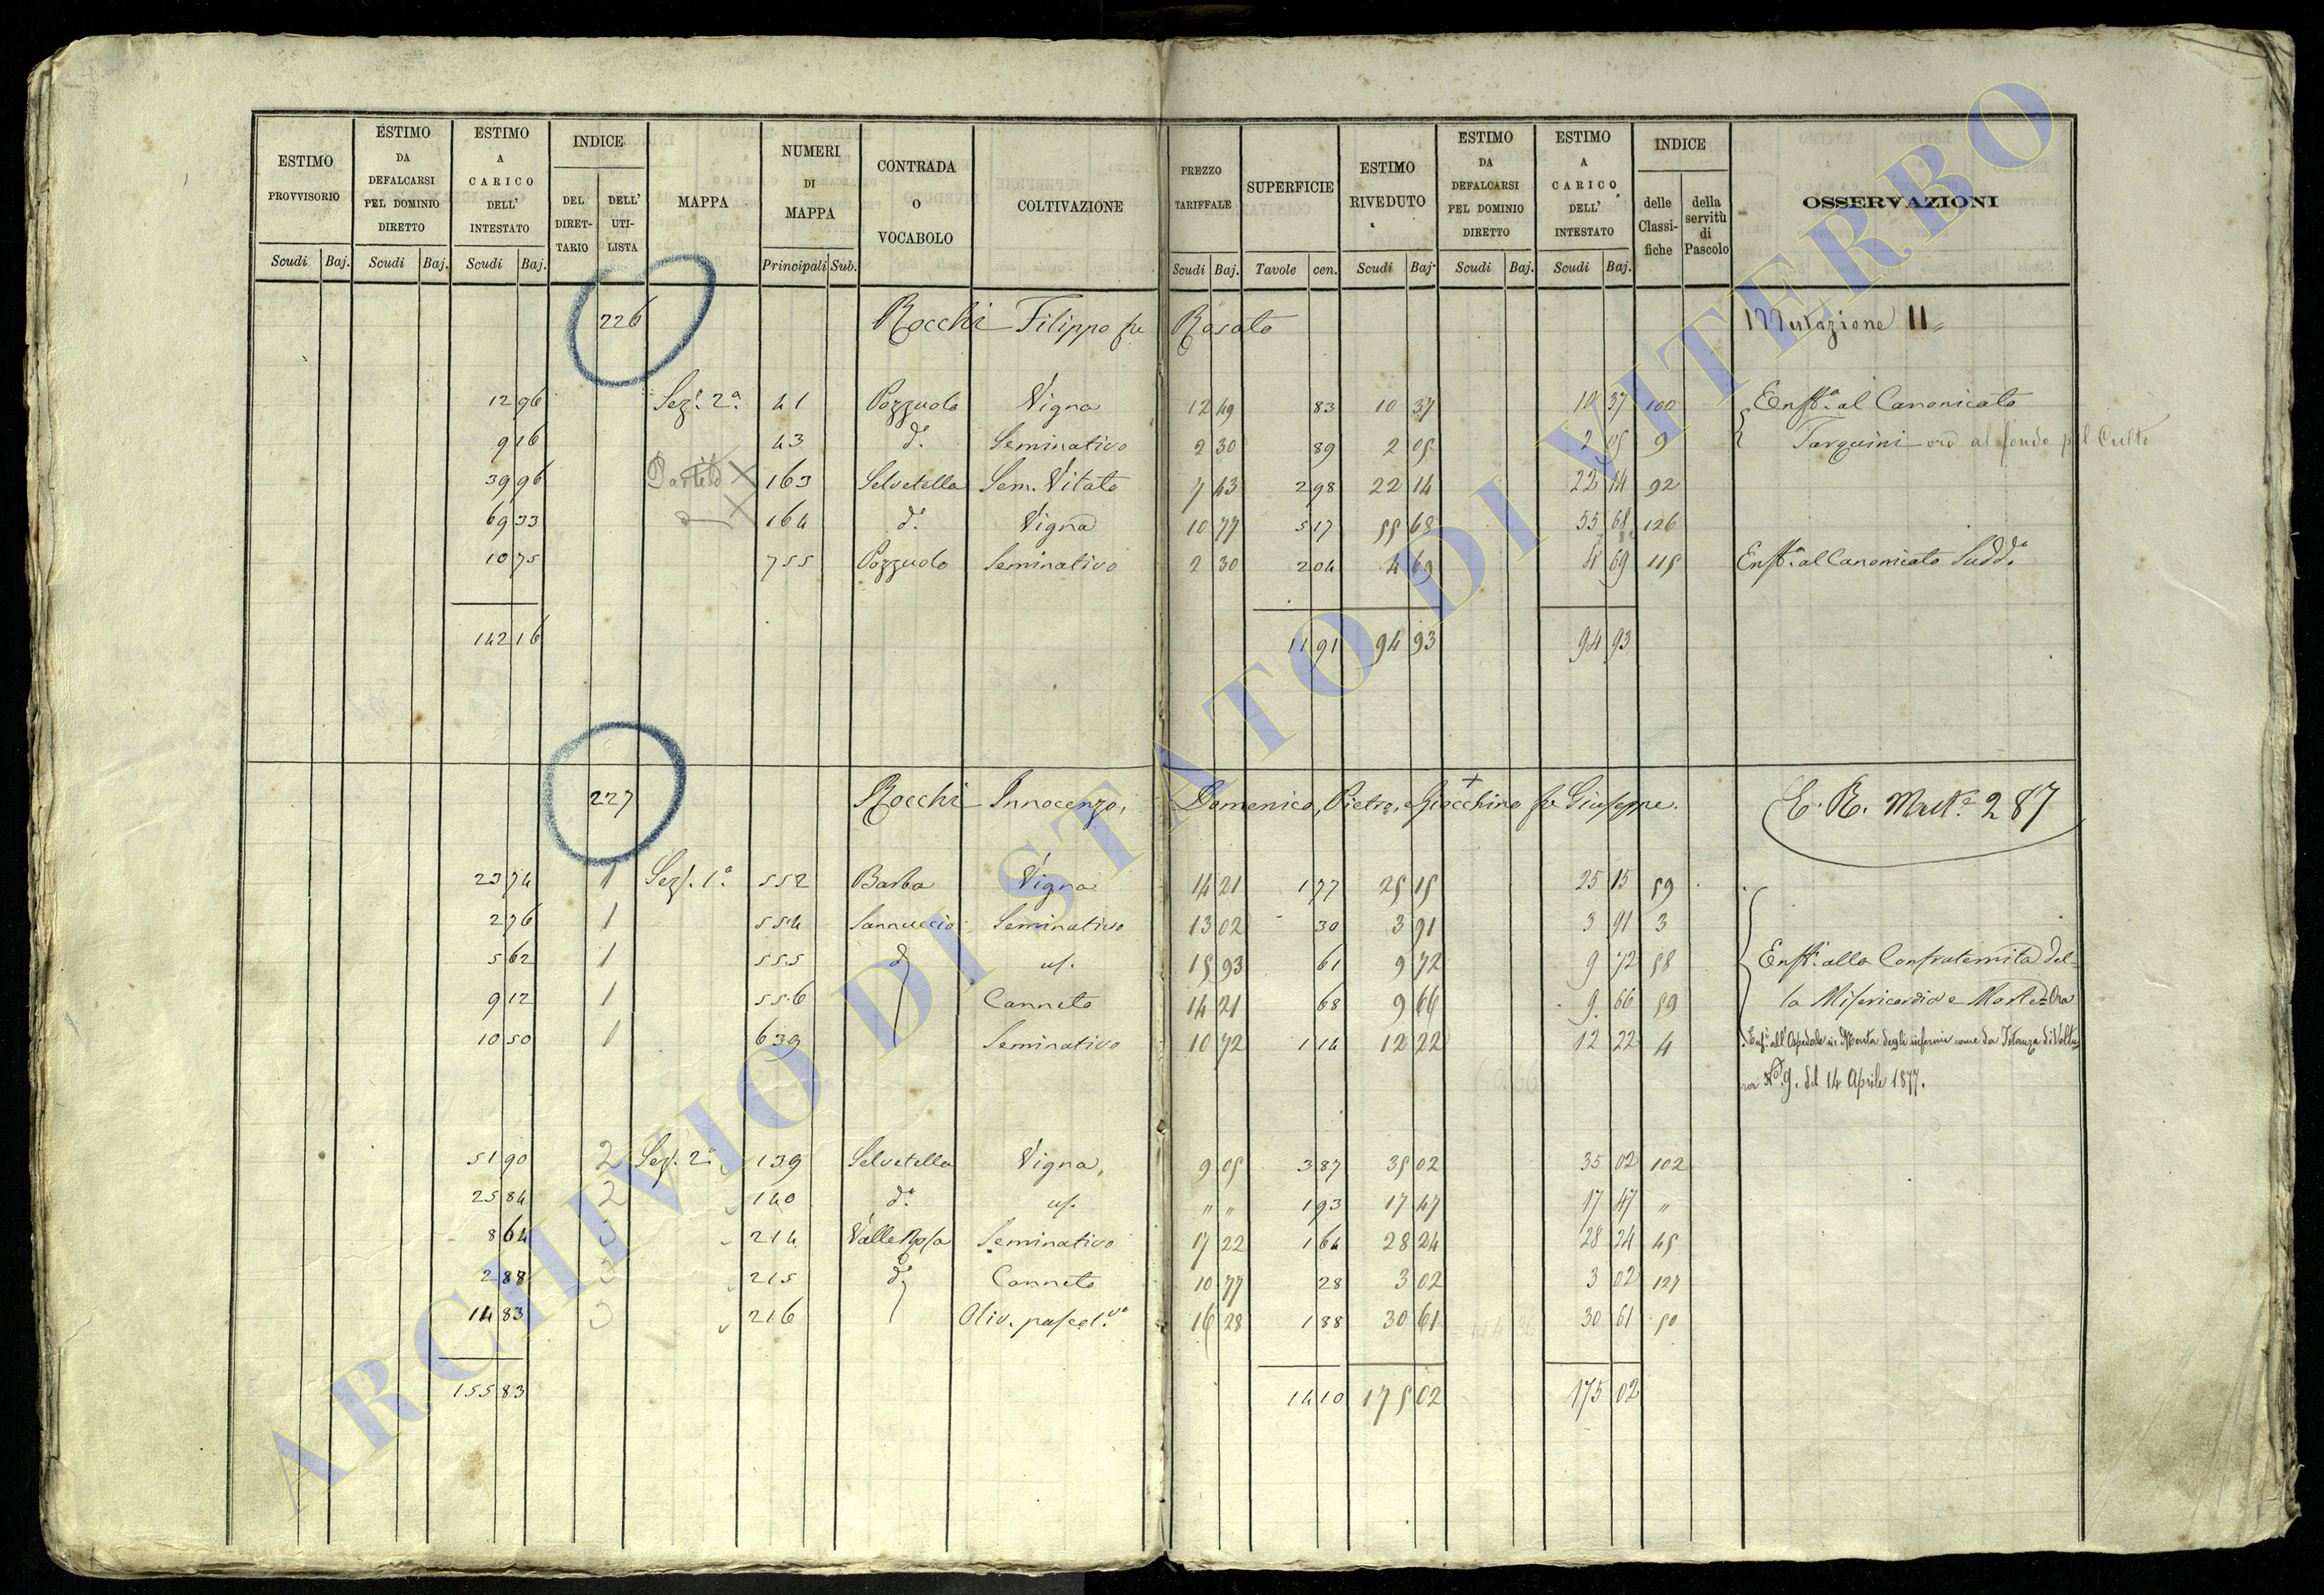 ESTIMO PROVVISORIO | ESTIMO DA DEFALCARSI PEL DOMINIO DIRETTO | ESTIMO A CARICO DELL' INTESTATO | INDICE | MAPPA | NUMERI DI MAPPA | CONTRADA O VOCABOLO | COLTIVAZIONE | PREZZO TARIFFALE | SUPERFICIE | ESTIMO RIVEDUTO | ESTIMO DA DEFALCARSI PEL DOMINIO DIRETTO | ESTIMO A CARICO DELL' INTESTATO | INDICE | OSSERVAZIONI
DEL DIRETTARIO | DELL' UTILISTA | delle Classifiche | della servitù di Pascolo
Scudi Baj. | Scudi Baj. | Scudi Baj. | Principali Sub. | Scudi Baj. | Tavole cen. | Scudi Baj. | Scudi Baj. | Scudi Baj.
226 Rocchi Filippo fu Rosato Mutazione 11
12 96 Sez. 2a. 41 Pozzuolo Vigna 12 49 83 10 37 10 37 100 Enfta. al Canonicato
9 16 43 do. Seminativo 2 30 89 2 05 2 05 9 Tarquini ora al fondo pel Culto
39 96 Partito X 163 Selvetella Sem. Vitato 7 43 2 98 22 14 22 14 92
69 33 X 164 do. Vigna 10 77 5 17 55 68 55 68 126
10 75 755 Pozzuolo Seminativo 2 30 2 04 4 69 4 69 115 Enfta. al Canonicato Suddo.
142 16 11 91 94 93 94 93
227 Rocchi Innocenzo, Domenico, Pietro, e Giocchino fu Giuseppe. E. R. Matte. 287
23 74 1 Sez. 1a. 552 Barba Vigna 14 21 1 77 25 15 25 15 59
2 76 1 554 Sannuccio Seminativo 13 02 30 3 91 3 91 3
5 62 1 555 do us. 15 93 61 9 72 9 72 58 Enfta. alla Confraternita del=
9 12 1 556 Canneto 14 21 68 9 66 9 66 59 la Misericordia e Morte= Ora
10 50 1 639 Seminativo 10 72 1 14 12 22 12 22 4 Enfa. all'Ospedale in Monta degli infermi come da Istanza di Voltu=
ra No. 9. del 14 Aprile 1877.
51 90 2 Sez. 2a 139 Selvetella Vigna, 9 05 3 87 35 02 35 02 102
25 84 2 140 do. us. " " 1 93 17 47 17 47 "
8 64 3 214 Valle Rosa Seminativo 17 22 1 64 28 24 28 24 45
2 88 3 215 do Canneto 10 77 28 3 02 3 02 127
14 83 3 216 Oliv. pascol.vo 16 28 1 88 30 61 30 61 50
155 83 14 10 175 02 175 02
ARCHIVIO DI STATO DI VITERBO